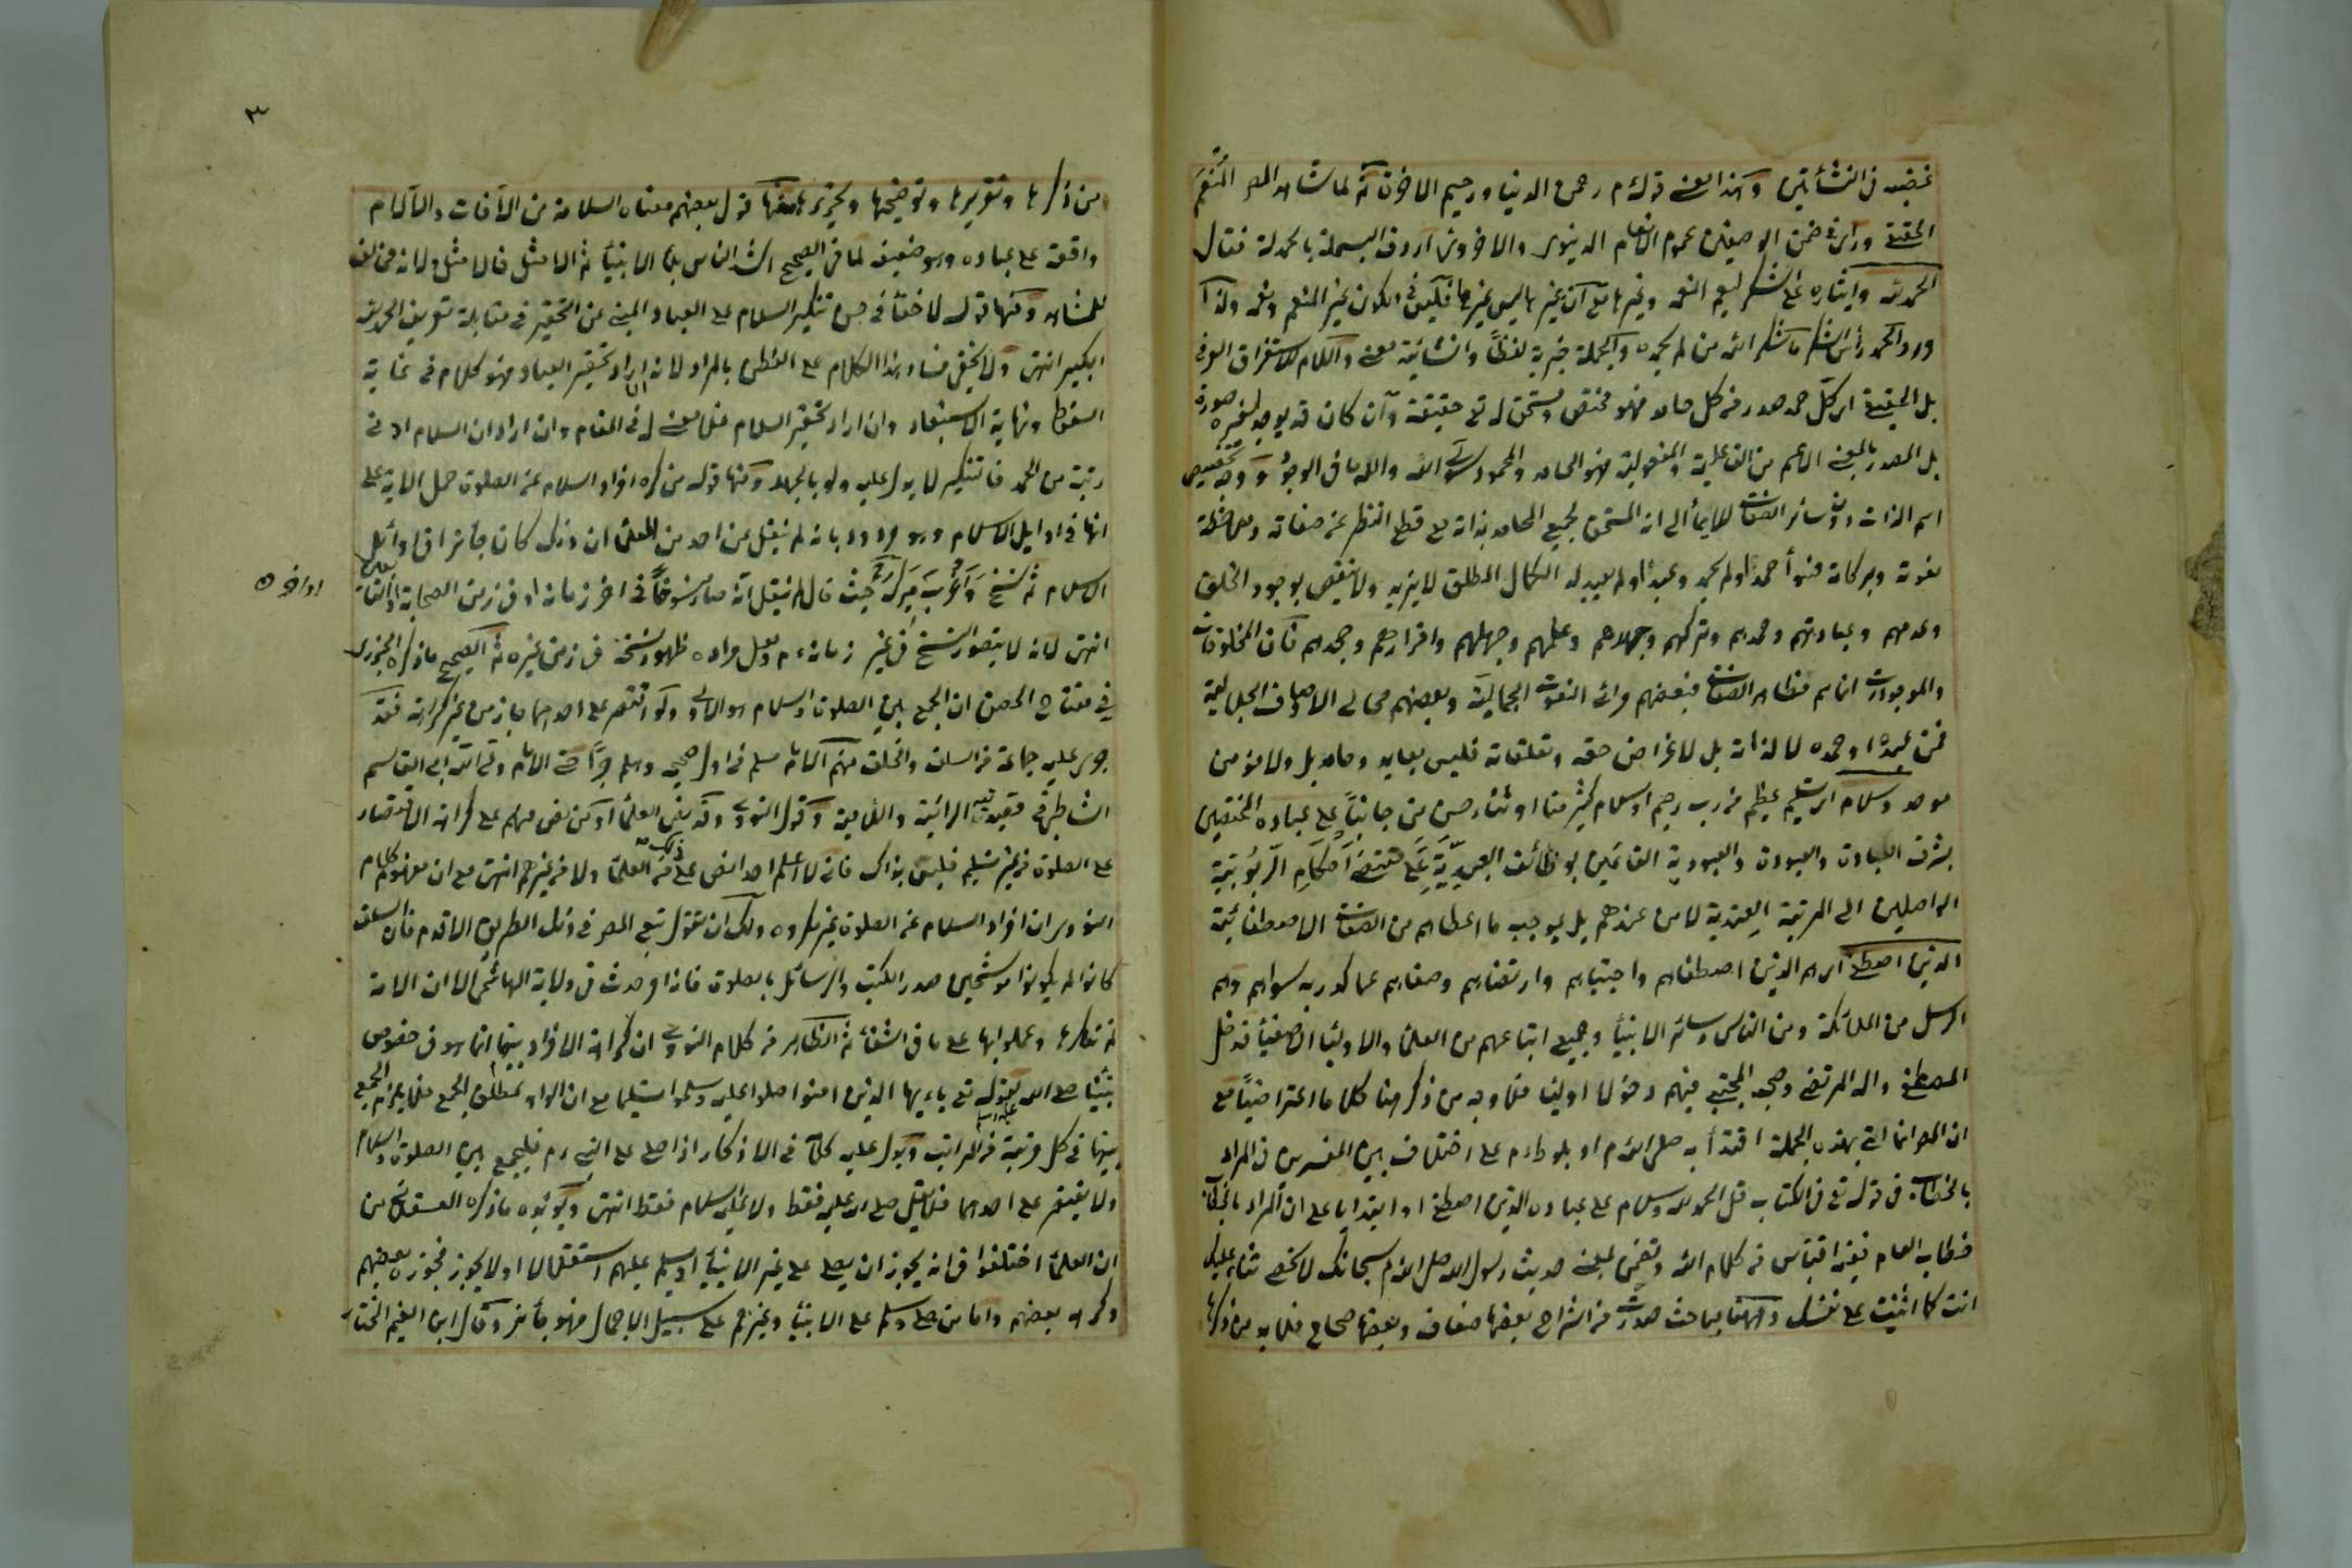 غضبه في النشأتين وهذا معنى قوله م رحمن الدنيا ورحيم الاخرة ثم لما شاهد المص المنعم
الحقيقي وراى في ضمن الوصفين عموم الانعام الدنيوى والاخروى اردف البسملة بالحمدلة فقال
الحمد لله وايثاره على الشكر ليعم النعم وغيرها مع ان غير ما ليس غيرها فليس في الكون غير المنعم ونعمه ولذا
ورد الحمد رأس الشكر ما شكر الله من لم يحمده والجملة خبرية لفظا وانشائية معنى واللام للاستغراق العرفي
بل الحقيقي اى كل حمد صدر من كل حامد فهو مختص ومستحق له تع حقيقة وان كان قد يوجد لغيره صورة
بل المصدر بالمعنى الاعم من الفاعلية والمفعولية فهو الحامد والمحمود سوى الله والله ما في الوجود ووجه تخصيص
اسم الذات دون سائر الصفات للايماء الى انه المستحق لجميع المحامد بذاته مع قطع النظر عن صفاته وملاحظة
نعوته وبركاته فهو أحمد او لم يحمد وعبد او لم يعبد له الكمال المطلق لا يزيد ولا ينقص بوجود الخلق
وعدمهم وعبادتهم وحمدهم وتركهم وجهلاهم وعلمهم وجهلهم واقرارهم وجحدهم فان المخلوقات
والموجودات انما هم مظاهر الصفات فبعضهم مرائي النعوت الجمالية وبعضهم مجالى الاوصاف الجلالية
فمن عبده او حمده لا لذاته بل لاغراض حقه وتعلقاته فليس بعابد وحامد بل ولا مؤمن
موحد وسلام اى تسليم عظيم من رب رحيم او سلام كثير منا او ثناء حسن من جانبنا على عباده المختصين
بشرف العبادة والعبودة والعبودية القائمين بوظائف العبدية على مقتضى احكام الربوبية
الواصلين الى المرتبة العندية لا من عندهم بل بموجب ما اعطاهم من الصفات الاصطفائية
الذين اصطفى اى هم الذين اصطفاهم واجتباهم وارتضاهم وصفاهم عما كدر به سواهم وهم
الرسل من الملائكة ومن الناس وسائر الانبياء وجميع اتباعهم من العلماء والاولياء الاصفياء فدخل
المصطفى واله المرتضى وصحبه المجتبى فيهم دخولا اوليا فلا وجه من ذكر هنا كلاما اعتراضيا مع
ان المص انما اتى بهذه الجملة اقتداء به صلى الله م او بلوط م على اختلاف بين المفسرين في المراد
بالخطاب في قوله تع في الكتاب قل الحمد لله وسلام على عباده الذين اصطفى او ابتداء على ان المراد بالخطاب
خطاب العام ففيه اقتباس من كلام الله وتضمن لمعنى حديث رسول الله صلى الله م سبحانك لا نحصى ثناء عليك
انت كما اثنيت على نفسك وههنا مباحث صدرت من الشراح بعضها ضعاف وبعضها صحاح فلا بد من ذكرها
٣
من ذكرها وتقريرها وتوضيحها وتحريرها منها قول بعضهم معناه السلامة من الآفات والآلام
واقعة على عباده وهو ضعيف لما في الصحيح اشد الناس بلاء الانبياء ثم الامثل فالامثل ولانه مخالف
للمشاهد ومنها قوله لا خفاء في حسن تنكير السلام على العباد المبنى عن التحقير في مقابلة تعريف الحمد لله
الكبير انتهى ولا يخفى فساد هذا الكلام على الفطن بالمراد لانه ان اراد تحقير العباد فهو كلام في غاية
السقوط ونهاية الاستبعاد وان اراد تحقير السلام فلا معنى له في المقام وان اراد ان السلام ادنى
رتبة من الحمد فالتنكير لا يدل عليه ولو بالجملة ومنها قوله من كره افراد السلام عن الصلوة حمل الاية على
انها في اوايل الاسلام وهو مردود بانه لم ينقل عن احد من العلماء ان ذلك كان جائزا في اوائل
الاسلام ثم نسخ واغرب ميرك حيث قال لم ينقل انه صار منسوخا في اخر زمانه او في زمن الصحابة او التابعين
اواخره
انتهى لانه لا يتصور النسخ في غير زمانه م ولعل مراده ظهور نسخه في زمن غيره ثم الصحيح ما ذكره الجزرى
في مفتاح الحصن ان الجمع بين الصلوة والسلام هو الاولى ولو اقتصر على احدهما جاز من غير كراهة فقد
جرى عليه جماعة من السلف والخلف منهم الامام مسلم في اول صحيحه وهلم جرا حتى الامام ولى الله ابى القاسم
الشاطبي في قصيدتيه الرائية واللامية وقول النووى وقد نص العلماء او من نص منهم على كراهة الاقتصار
على الصلوة من غير تسليم فليس بذاك فانى لا اعلم احدا نص على ذلك من العلماء ولا من غيرهم انتهى مع ان مفهوم كلام
النووى ان افراد السلام عن الصلوة غير مكروه ولك ان تقول تبع المص في ذلك الطريق الاقدم فان السلف
كانوا لم يكونوا موشحين صدر الكتب والرسائل بالصلوة فانه امر حدث في ولاية الهاشمى الا ان الامة
لم تنكرها وعملوا بها على ما في الشفاء ثم الظاهر من كلام النووى ان كراهة الافراد بينهما انما هو في خصوص
نبينا صلى الله لقوله تع يا ايها الذين امنوا صلوا عليه وسلموا تسليما مع ان الواو لمطلق الجمع فلا يلزم الجمع
بينهما في كل مرتبة من المراتب ويدل عليه كلامه في الاذكار اذا صلى على النبى م فليجمع بين الصلوة والسلام
ولا يقتصر على احدهما فلا يقل صلى الله عليه فقط ولا عليه السلام فقط انتهى ويؤيده ما ذكره العسقلانى من
ان العلماء اختلفوا في انه يجوز ان يصلى على غير الانبياء او يسلم عليهم استقلالا او لا يجوز فجوزه بعضهم
وكرهه بعضهم واما من صلى وسلم على الانبياء وغيرهم على سبيل الاجمال فهو جائز وقال ابن القيم المختار